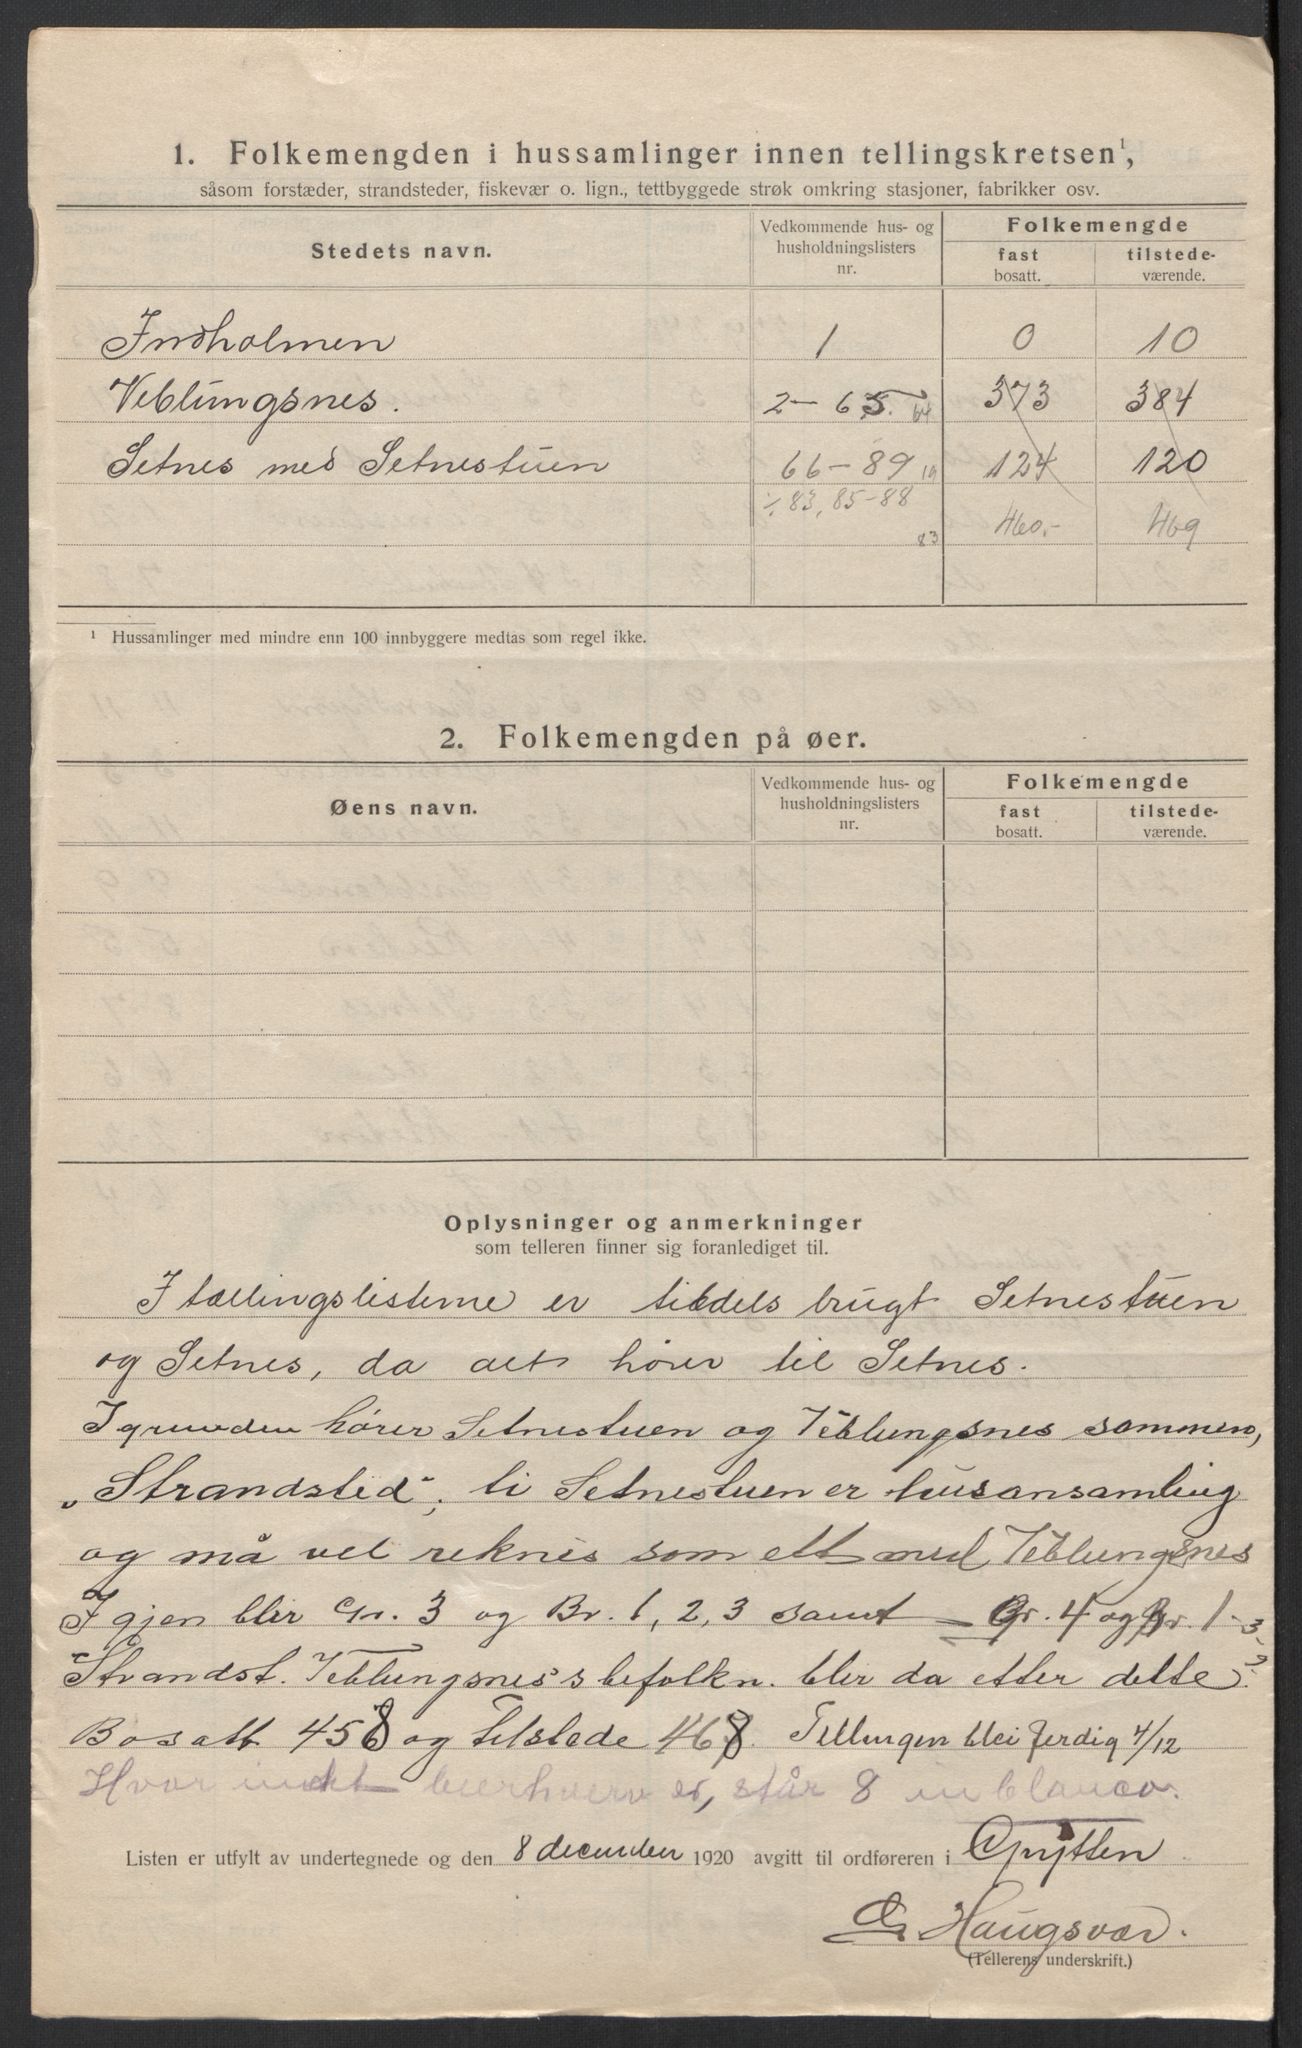 1. Folkemengden i hussamlinger innen tellingskretsen¹,
såsom forstæder, strandsteder, fiskevær o. lign., tettbyggede strøk omkring stasjoner, fabrikker osv.
Stedets navn.
Vedkommende hus- og husholdningslisters nr.
Folkemengde
fast bosatt.
tilstede-værende.
Indholmen 1 0 10
Veblungsnes. 2 – 65. 64 373 384
Setnes med Setnestuen 66 – 89 19 124 120
÷ 83, 85–88 460.- 469
83
¹ Hussamlinger med mindre enn 100 innbyggere medtas som regel ikke.
2. Folkemengden på øer.
Øens navn.
Vedkommende hus- og husholdningslisters nr.
Folkemengde
fast bosatt.
tilstede-værende.
Oplysninger og anmerkninger
som telleren finner sig foranlediget til.
I tællingslisterne er tildels brugt Setnestuen
og Setnes, da alt hører til Setnes.
I grunden hører Setnestuen og Veblungsnes sammen,
„Strandsted“, ti Setnestuen er husansamling
og må vel reknes som ett med Veblungsnes
Igjen blir Gr. 3 og Br. 1, 2, 3 samt Gr. 4 og Br. 1-3.
Strandst. Veblungsnes's befolkn. blir da etter dette
Bosatt 458 og tilstede 468. Tellingen blei ferdig 4/12
Hvor intet bierhverv er, står 8 in blanco.
Listen er utfylt av undertegnede og den 8 december 1920 avgitt til ordføreren i Grytten
Haugsvær.
(Tellerens underskrift.)